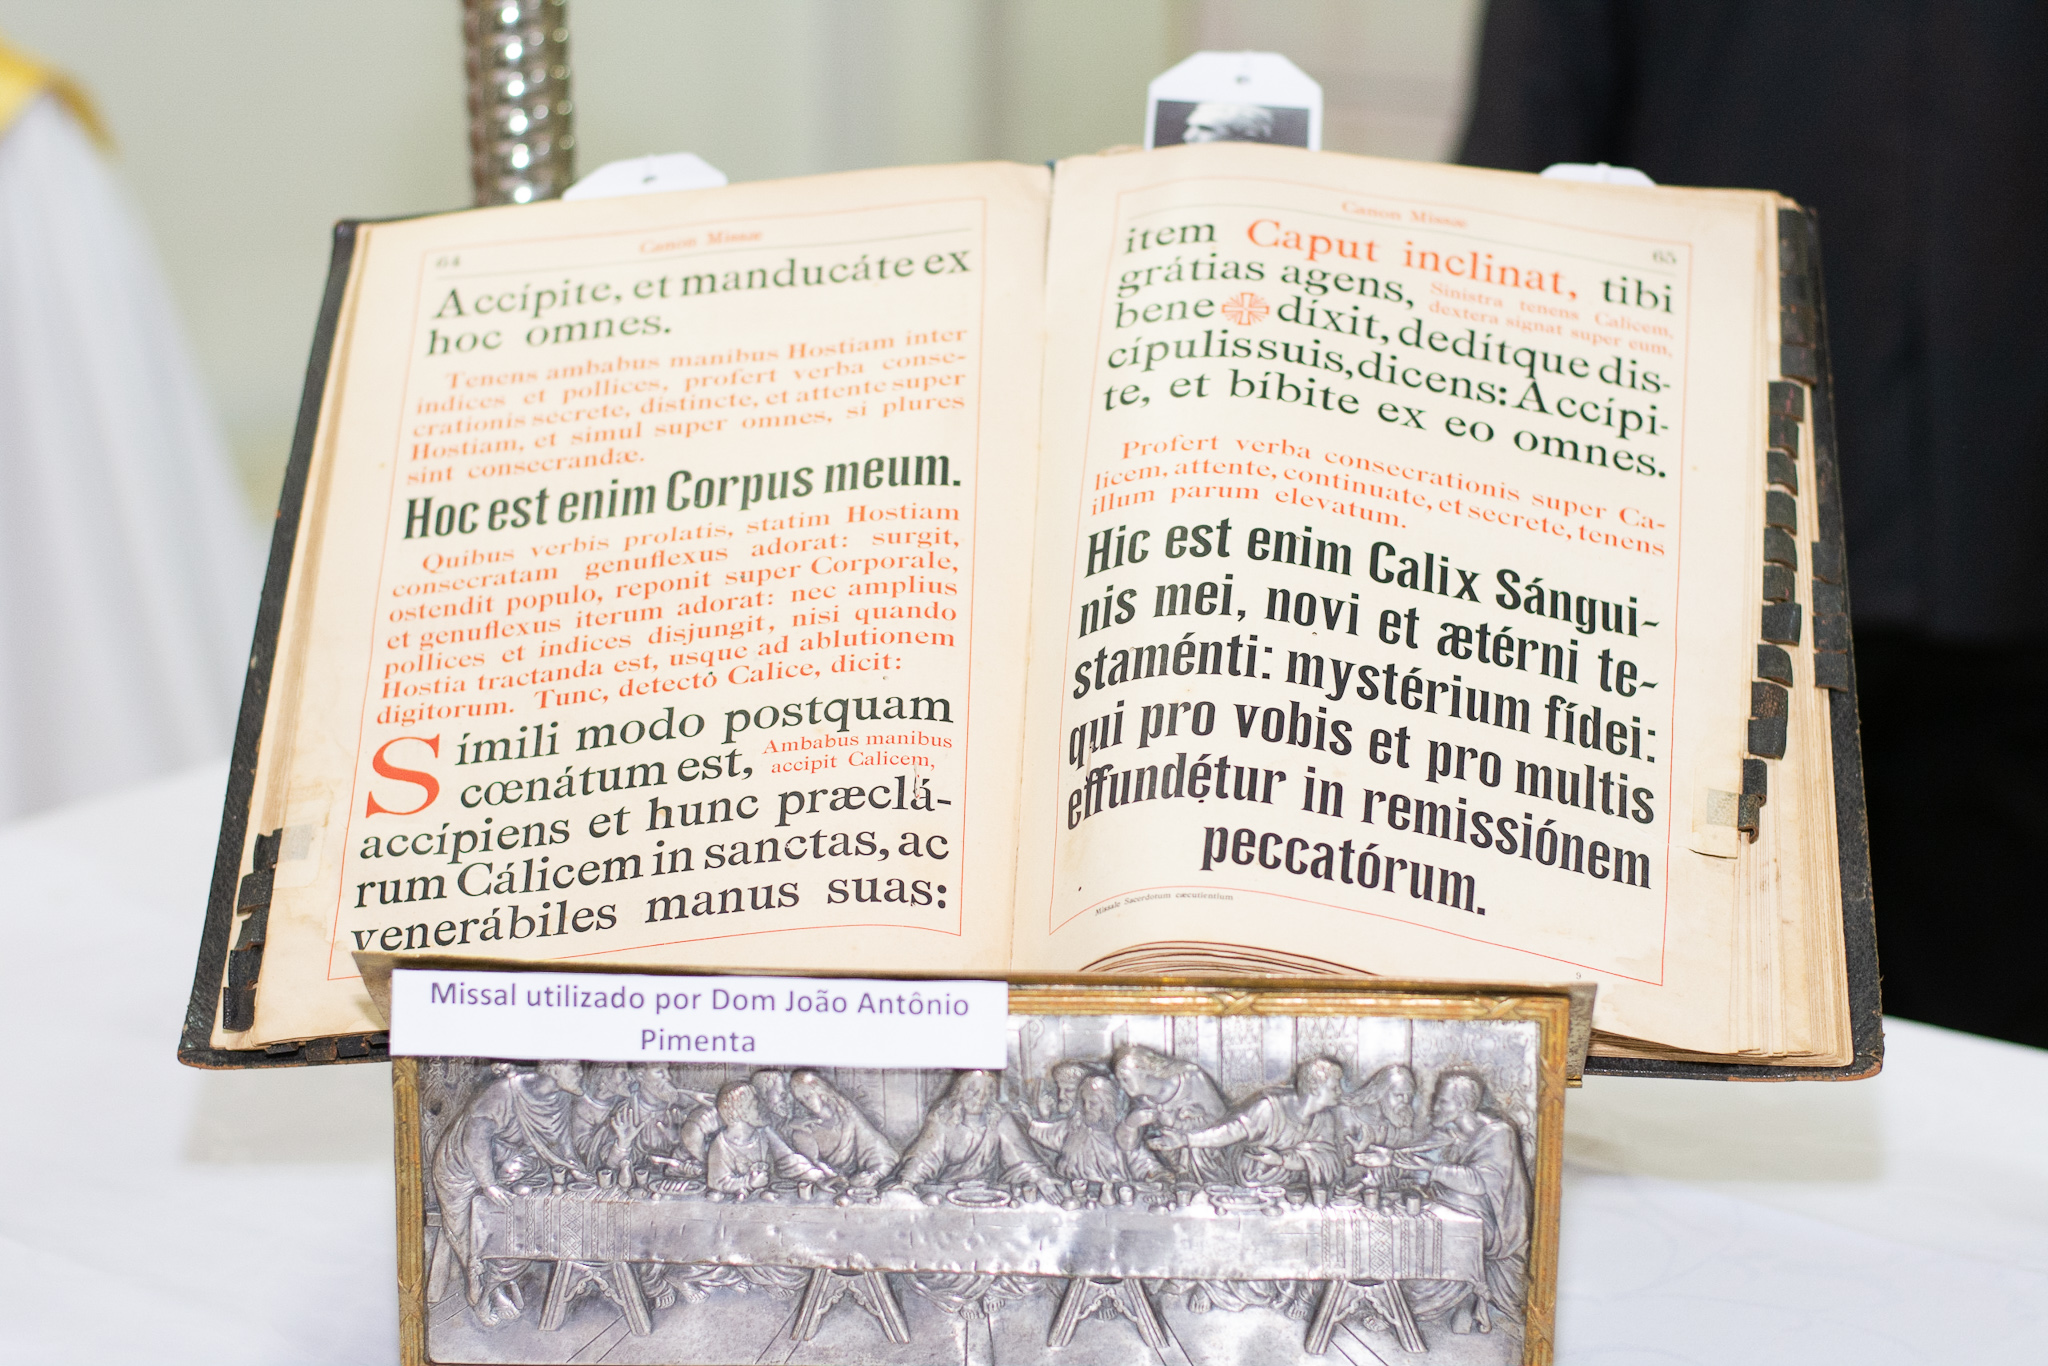 64
Canon Missæ
Accípite, et manducáte ex
hoc omnes.
Tenens ambabus manibus Hostiam inter
indices et pollices, profert verba conse-
crationis secrete, distincte, et attente super
Hostiam, et simul super omnes, si plures
sint consecrandæ.
Hoc est enim Corpus meum.
Quibus verbis prolatis, statim Hostiam
consecratam genuflexus adorat: surgit,
ostendit populo, reponit super Corporale,
et genuflexus iterum adorat: nec amplius
pollices et indices disjungit, nisi quando
Hostia tractanda est, usque ad ablutionem
digitorum. Tunc, detecto Calice, dicit:
Símili modo postquam
cœnátum est, Ambabus manibus
accipit Calicem,
accípiens et hunc præclá-
rum Cálicem in sanctas, ac
venerábiles manus suas:
Canon Missæ
65
item Caput inclinat, tibi
grátias agens, Sinistra tenens Calicem,
dextera signat super eum,
bene díxit, dedítque dis-
cípulis suis, dicens: Accípi-
te, et bíbite ex eo omnes.
Profert verba consecrationis super Ca-
licem, attente, continuate, et secrete, tenens
illum parum elevatum.
Hic est enim Calix Sángui-
nis mei, novi et ætérni te-
staménti: mystérium fídei:
qui pro vobis et pro multis
effundétur in remissiónem
peccatórum.
Missale Sacerdotum cæcutientium
9
Missal utilizado por Dom João Antônio
Pimenta